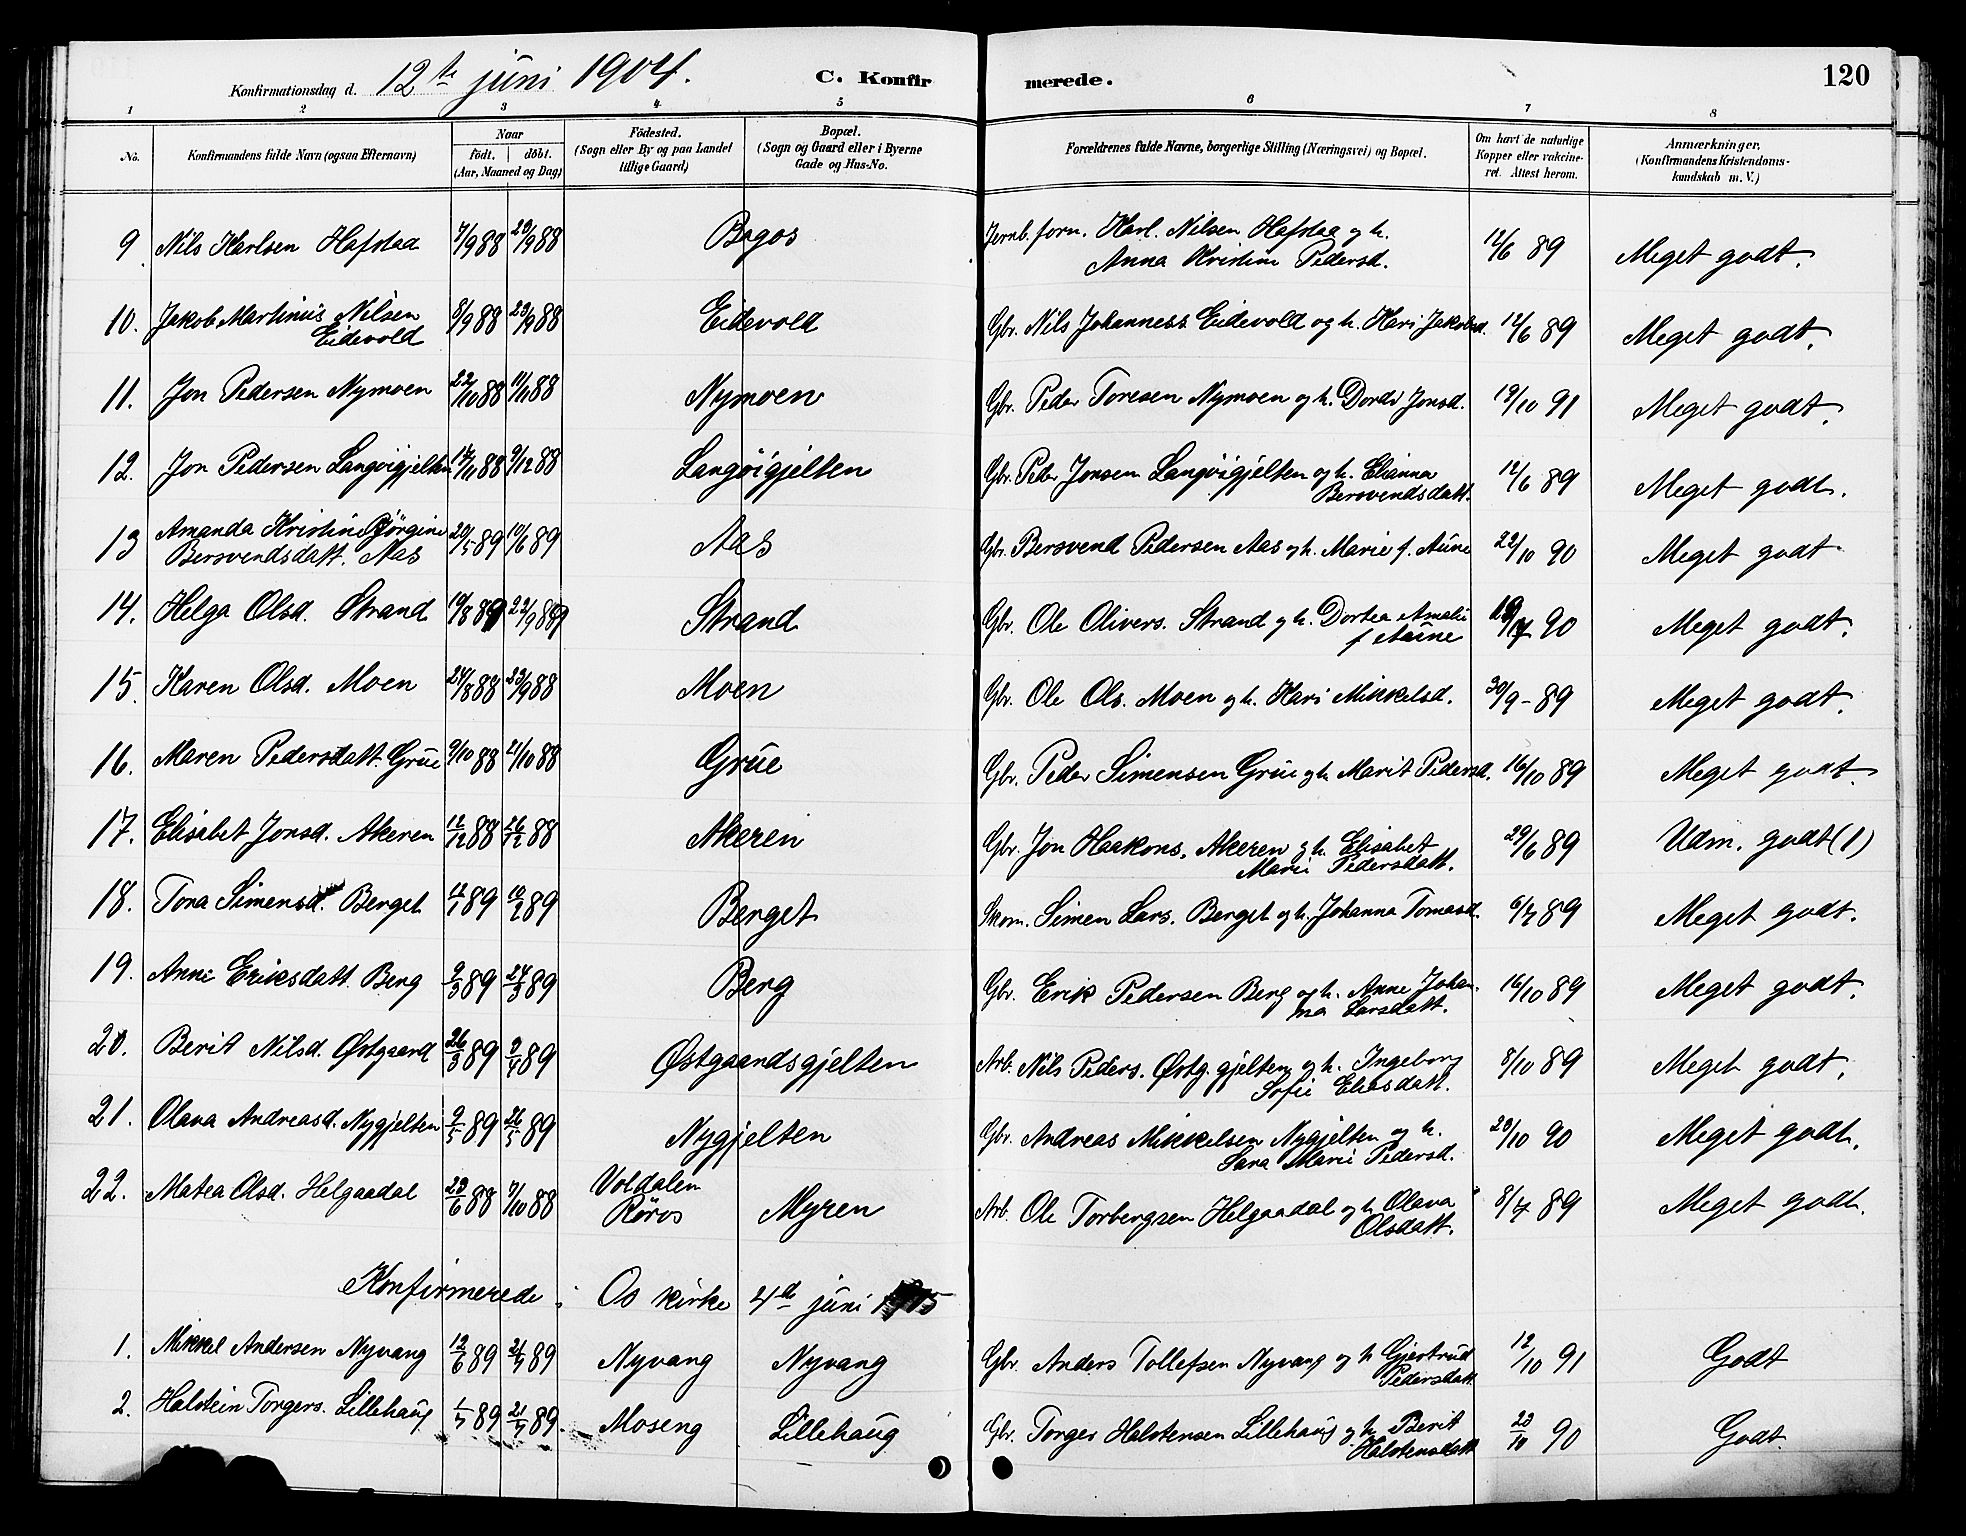 Konfirmationsdag d. 12te juni 1904. C. Konfirmerede. 120
1 2 3 4 5 6 7 8
No. Konfirmandens fulde Navn (ogsaa Efternavn) Naar født. døbt. (Aar, Maaned og Dag) Födested. (Sogn eller By og paa Landet tillige Gaard) Bopæl. (Sogn og Gaard eller i Byerne Gade og Hus-No. Forældrenes fulde Navne, borgerlige Stilling (Næringsvei) og Bopæl. Om havt de naturlige Kopper eller vakcineret. Attest herom. Anmærkninger. (Konfirmandens Kristendomskundskab m. V.)
9. Nils Karlsen Hafstad 7/9 88 23/9 88 Bagos Jernb. form. Karl. Nilsen Hafstaa og h. Anna Kristine Pedersd. 12/6 89 Meget godt.
10. Jakob Martinus Nilsen Eidevold 8/9 88 23/9 88 Eidevold Gbr. Nils Johanness. Eidevold og h. Kari Jakobsd. 12/6 89 Meget godt.
11. Jon Pedersen Nymoen 22/10 88 11/11 88 Nymoen Gbr. Peder Toresen Nymoen og h. Dordi Jonsd. 19/10 91 Meget godt.
12. Jon Pedersen Langøigjelten 17/11 88 9/12 88 Langøigjelten Gbr. Peder Jonsen Langøigjelten og h. Elianna Bersvendsdatt. 12/6 89 Meget godt.
13 Amanda Kristine Jørgine Bersvendsdatt. Aas 20/5 89 10/6 89 Aas Gbr. Bersvend Pedersen Aas og h. Marie f. Aune 22/10 90 Meget godt
14. Helga Olsd. Strand 10/8 89 22/9 89 Strand Gbr. Ole Olivers. Strand og h. Dortea Amalie f Aune 90 Meget godt.
15. Karen Olsd. Moen 24/8 88 23/9 88 Moen Gbr. Ole Ols. Moen og h. Kari Mikkelsd. 30/9 - 89 Meget godt.
16. Maren Pedersdatt. Grue 9/10 88 21/10 88 Grue Gbr. Peder Simensen Grue og h. Marit Pedersd. 16/10 89 Meget godt.
17. Elisabet Jonsd. Akeren 12/12 88 26/12 88 Akeren Gbr. Jon Haakons. Akeren og h. Elisabet Marie Pedersdatt. 29/6 89 Udm. godt (1)
18. Tora Simensd. Berget 12/1 89 10/2 89 Berget Skom. Simen Lars. Berget og h. Johanna Tomasd. 6/7 89 Meget godt.
19. Anne Eriksdatt. Berg 9/3 89 24/3 89 Berg Gbr. Erik Pedersen Berg og h. Anne Johanna Larsdatt. 16/10 89 Meget godt.
20. Berit Nilsd. Østgaard 26/3 89 89 Østgaardsgjelten Arb. Nils Peders. Østg.gjelten og h. Ingeborg Sofie Eliasdatt. 8/10 89 Meget godt.
21. Olava Andreasd. Nygjelten 9/5 89 26/5 89 Nygjelten Gbr. Andreas Mikkelsen Nygjelten og h. Sara Marie Pedersd. 23/10 90 Meget godt.
22. Matea Olsd. Helgaadal 23/6 88 7/10 88 Voldalen Röros Myren Arb. Ole Torbergsen Helgaadal og h Olava Olsdatt. 8/7 89 Meget godt.
Konfirmerede i Os kirke 4de juni 1905
1. Mikkel Andersen Nyvang 12/6 89 21/7 89 Nyvang Nyvang Gbr. Anders Tollefsen Nyvang og h Gjertrud Pedersdatt. 12/10 91 Godt
2. Halstein Torgers. Lillehaug 1/7 89 21/7 89 Moseng Lillehaug Gbr. Torger Halstensen Lillehaug og h Berit Halstensdatt 23/10 90 Godt.